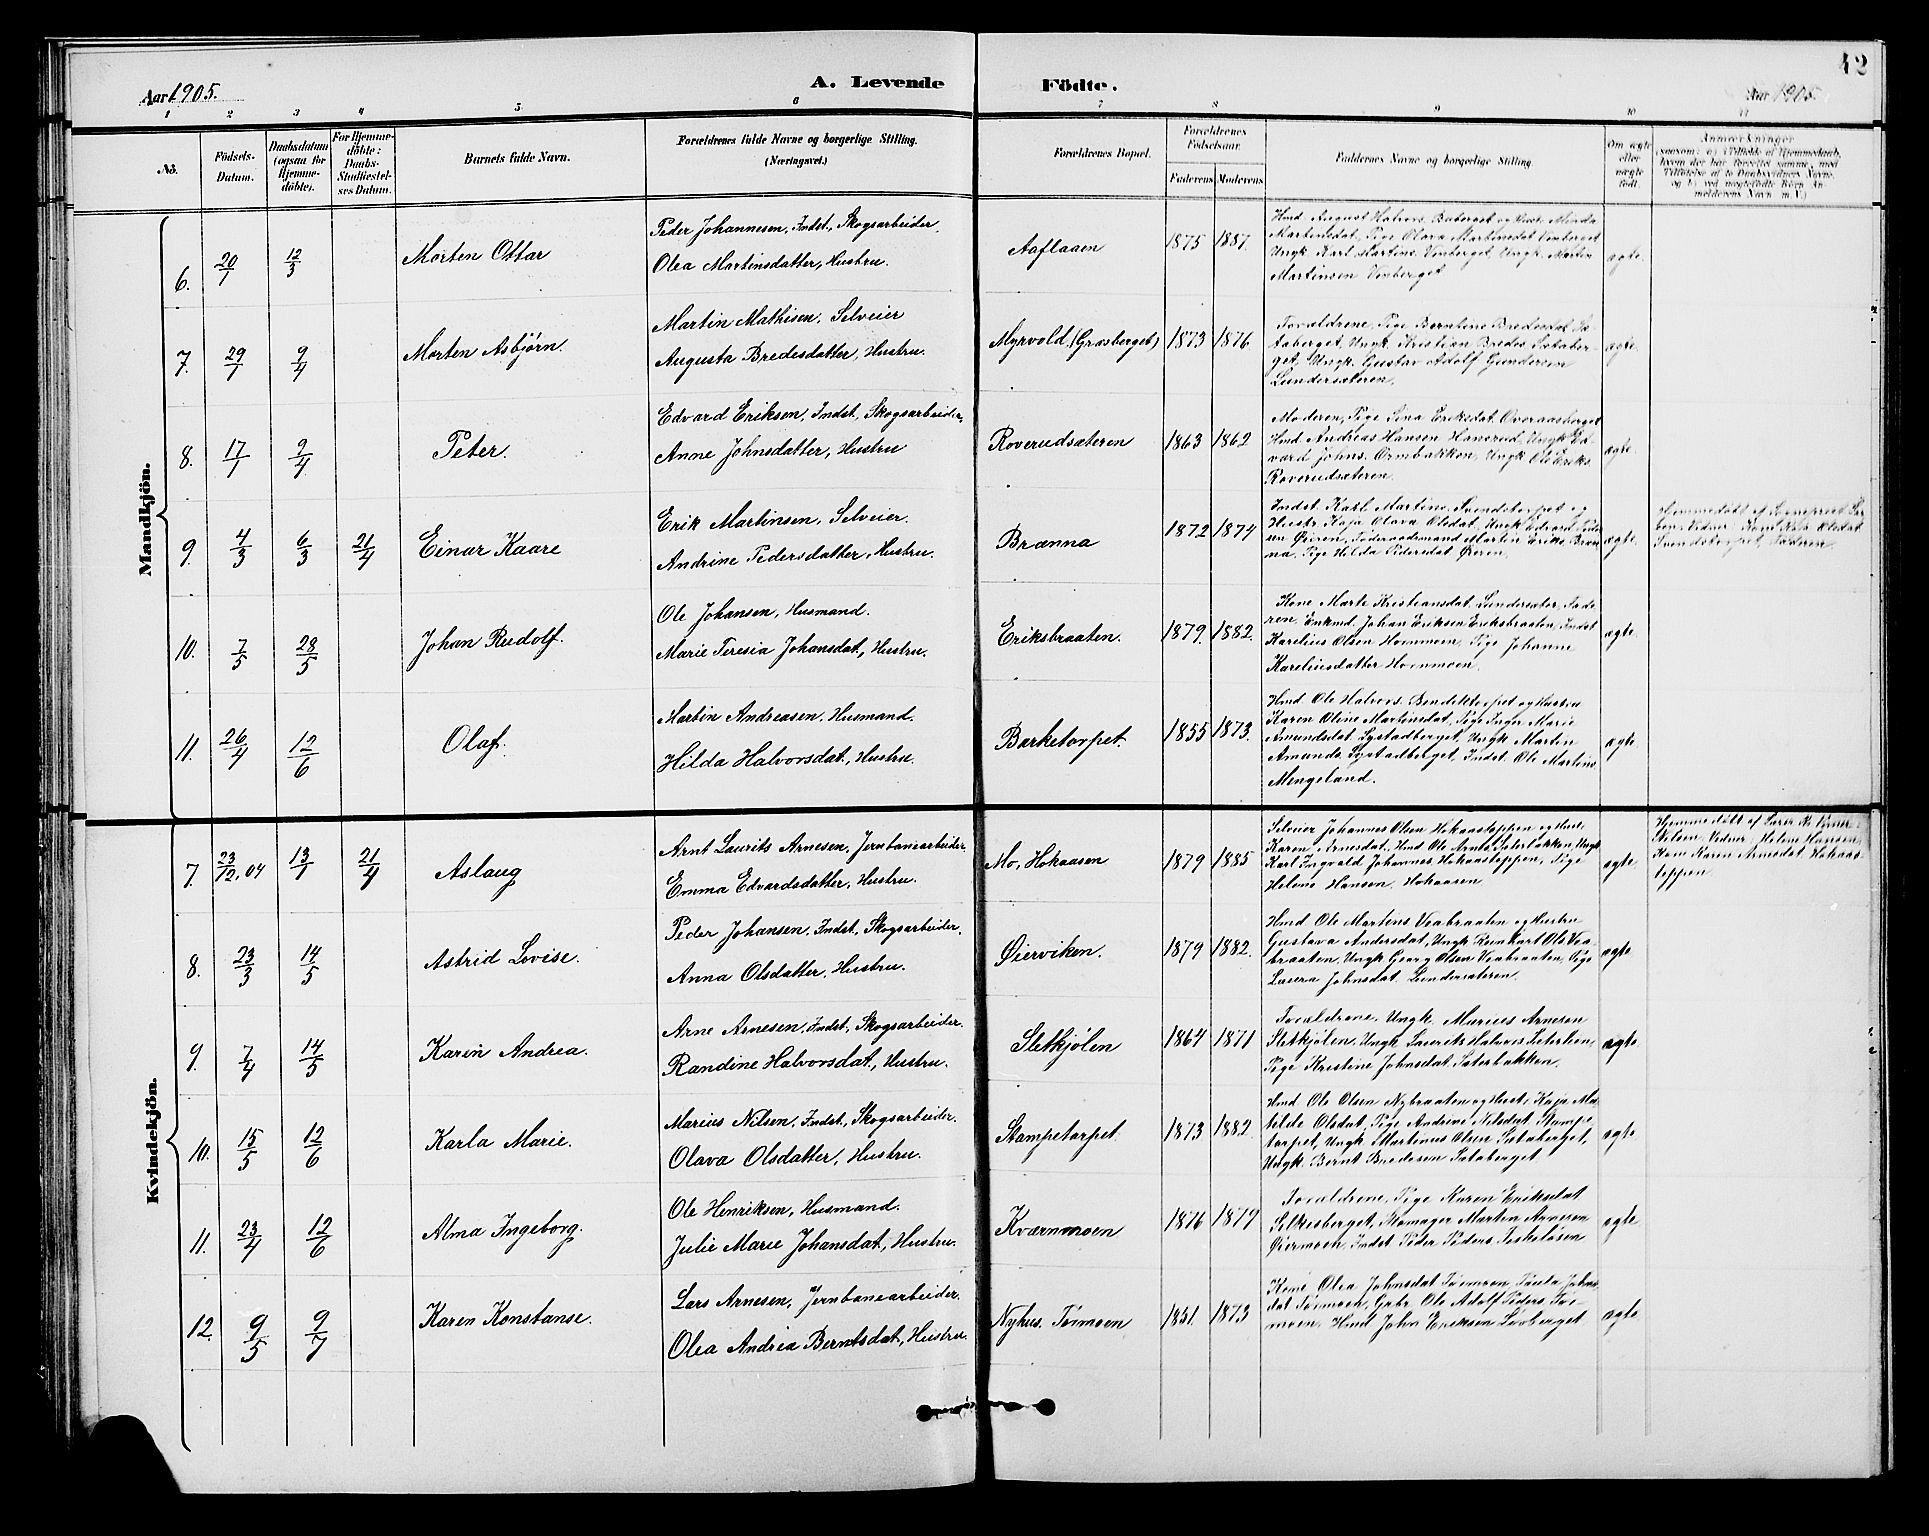 Aar 1905.
A. Levende
Födte.
Aar 1905.
42
1 2 3 4 5 6 7 8 9 10 11
No.
Födsels-Datum.
Daabsdatum (ogsaa for Hjemmedöbte).
For Hjemmedöbte: Daabs-Stadfæstelses Datum.
Barnets fulde Navn.
Forældrenes fulde Navne og borgerlige Stilling.
(Næringsvei.)
Forældrenes Bopæl.
Forældrenes Födselsaar.
Faderens Moderens
Faddernes Navne og borgerlige Stilling.
Om ægte eller uægte födt.
Anmærkninger
Mandkjön.
6. 20/1 12/3 Morten Ottar
Peder Johannesen, Indst, Skogsarbeider.
Olea Martinsdatter, Hustru.
Aaflaaen 1875 1887.
Hmd August Halvors. Baberget og Hustr Minda
Martinsdat, Pige Olava Martinsdat Vinberget
Ungk Karl Martins. Vinberget, Ungk. Martin
Martinsen Vinberget
ægte.
7. 29/1 9/4 Morten Asbjörn.
Martin Mathisen, Selveier
Augusta Bredesdatter, Hustru.
Myrvold, (Grasberget) 1873 1876
Forældrene, Pige Berntine Bredesdat Sætaberget, Ungk. Kristian Bredes Sætaberget, Ungk. Gustav Adolf Gundersen
Lundersæteren.
ægte.
8. 17/1 9/4 Peter.
Edvard Eriksen, Indst, Skogsarbeider,
Anne Johnsdatter, Hustru
Roverudsæteren 1863 1862
Moderen, Pige Sina Eriksdat. Overaasberget
Hmd Andreas Hansen Hansrud, Ungk Edvard Johns. Ormbakken, Ungk Ole Eriks.
Roverudsæteren.
ægte.
9. 4/3 6/3 21/4 Einar Kaare
Erik Martinsen, Selveier.
Andrine Pedersdatter, Hustru.
Brænna 1872 1874
Indst. Karl Martins. Svendstorpet og
Hustr. Kaja Olava Olsdat, Ungk Edvard Pedersen Øieren, Martin Eriks. Brænna, Pige Hilda Pedersdat Øieren.
ægte.
Svendstorpet, Faderen.
10. 7/5 28/5 Johan Rudolf.
Ole Johansen, Husmand.
Marie Teresia Johansdat, Hustru.
Eriksbraaten. 1879. 1882.
Kone Marte Kristiansdat. Lundersæter, Faderen, Enkmd. Johan Eriksen Eriksbraaten, Indst
Karelius Olsen Hornmoen, Pige Johanne
Kareliusdatter Hornmoen.
ægte
11. 26/4 12/6 Olaf.
Martin Andreasen, Husmand.
Hilda Halvorsdat., Hustru.
Barketorpet. 1855 1873.
Hmd Ole Halvors. Bendiktorpet og Hustru
Karen Oline Martinsdat, Pige Inger Marie
Amundsdat. Systadberget, Ungk Martin
Amunds. Systadberget, Indst Ole Martins.
Mengeland.
ægte
Kvindekjön.
7. 23/12,04 13/1 21/4 Aslaug
Arnt Laurits Arnesen, Jernbanearbeider.
Emma Edvardsdatter, Hustru.
Mo, Hokaasen 1879 1885
Selveier Johannes Olsen Hokaastoppen og Hust.
Karen Arnesdat, Hmd Ole Arnes Sæterbakken, Ungk
Karl Ingvald Johannes. Hokaastoppen, Pige
Helene Hansen, Hokaasen
ægte
8. 23/3 14/5 Astrid Lovise.
Peder Johansen, Indst, Skogsarbeider.
Anna Olsdatter, Hustru.
Øierviken. 1879 1882.
Hmd Ole Martens Vaabraaten og Hustru
Gustava Andersdat, Ungk Reinhart Ols Vaabraaten, Ungk Georg Olsen Vaabraaten, Pige
Laura Johnsdat Lundersæteren.
ægte
9. 7/4 14/5 Karin Andrea.
Arne Arnesen, Indst, Skogsarbeider.
Randine Halvorsdat, Hustru.
Sletkjølen 1864 1871
Forældrene, Ungk. Marius Arnesen
Sletkjølen, Ungk Laurits Halvors
Pige Kristine Johnsdat. Sæterbakken.
ægte
10. 15/5 12/6 Karla Marie.
Marius Nilsen, Indst, Skogsarbeider.
Olava Olsdatter, Hustru.
Stampetorpet. 1873 1882.
Hmd Ole Olsen Nybraaten og Hust, Kaja Matilde Olsdat, Pige Andrine Nilsdat Stampetorpet, Ungk Martinus Olsen Sætaberget,
Ungk. Bernt Bredesen Sætaberget
ægte
11. 23/4 12/6 Alma Ingeborg.
Ole Henriksen, Husmand.
Julie Marie Johansdat, Hustru.
Kværnmoen 1876 1879
Forældrene, Pige Karen Eriksdat
Silkesberget, Skomager Martin Arnesen
Øiermoen, Indst Peder Peders.
ægte
12. 9/5 9/7 Karen Konstanse.
Lars Arnesen, Jernbanearbeider.
Olea Andrea Berntsdat, Hustru
Nyhus. Törmoen 1851. 1873
Kone Olea Johnsdat Törmoen, Paula Johnsdat Törmoen, Ole Adolf Peders Törmoen, Hmd John Eriksen Løvberget
ægte